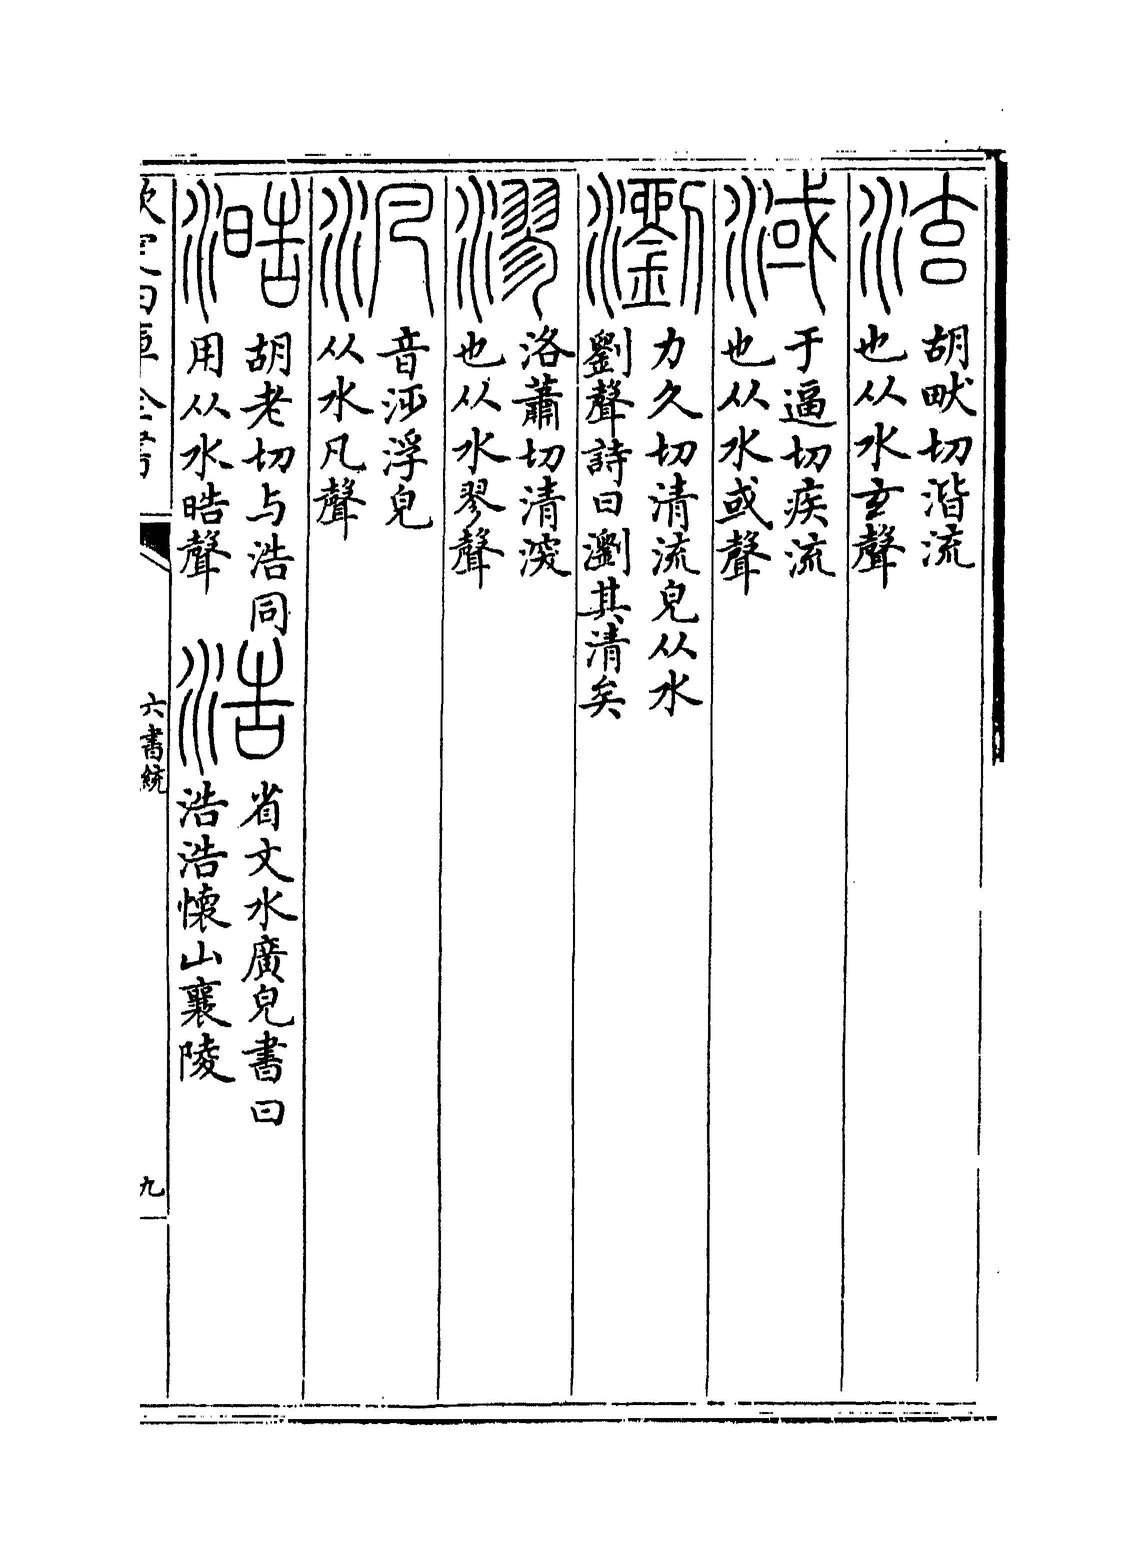 泫
胡畎切湝流
也从水玄聲
淢
于逼切疾流
也从水或聲
瀏
力久切清流皃从水
劉聲詩曰瀏其清矣
漻
洛蕭切清深
也从水翏聲
汎
音浮皃
从水凡聲
澔
胡老切与浩同
用从水晧聲
浩
省文水廣皃書曰
浩浩懷山襄陵
欽定四庫全書
六書統
九